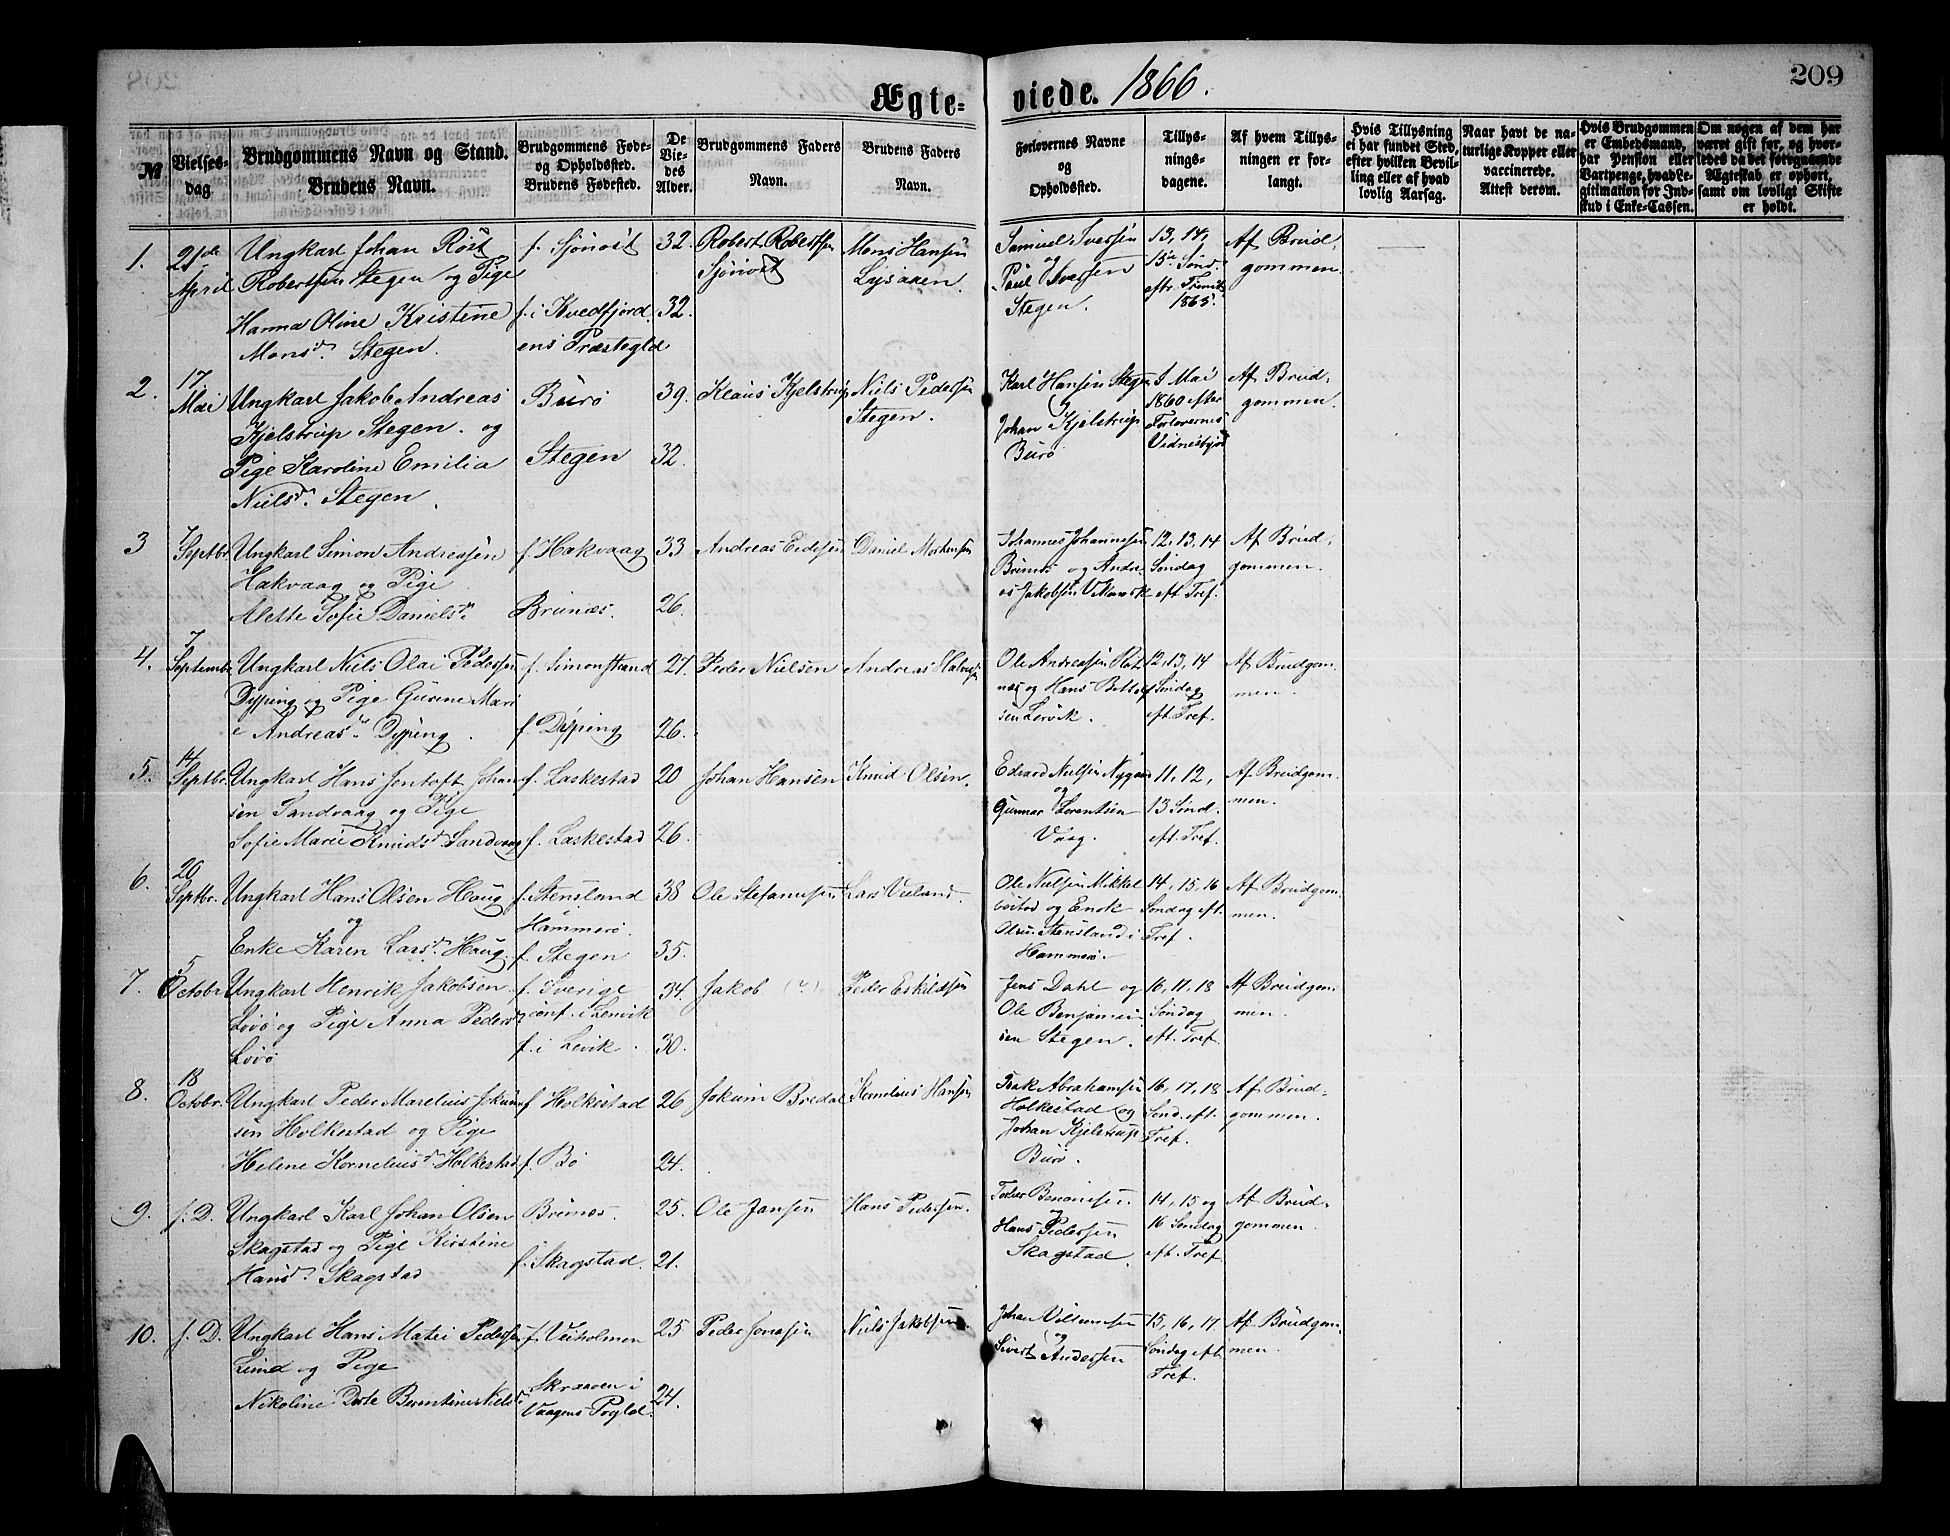 209
Ægte-
viede. 1866.
№
Vielses-
dag.
Brudgommens Navn og Stand.
Brudens Navn.
Brudgommens Føde-
og Opholdssted.
Brudens Fødested.
De
Vie-
des
Alder.
Brudgommens Faders
Navn.
Brudens Faders
Navn.
Forlovernes Navne
og
Opholdssted.
Tillys-
nings-
dagene.
Af hvem Tillys-
ningen er for-
langt.
Hvis Tillysning
ei har fundet Sted,
efter hvilken Bevil-
ling eller af hvad
lovlig Aarsag.
Naar havt de na-
turlige Kopper eller
vaccinerede.
Attest derom.
Hvis Brudgommen
er Embedsmand,
har Pension eller
Vartpenge, hvad Le-
gitimation for Ind-
skud i Enke-Cassen.
Om nogen af dem har
været gift før, og hvor-
ledes da det foregaaende
Ægteskab er ophørt,
samt om lovligt Skifte
er holdt.
1.
21de
April
Ungkarl Johan Röst
Robertsen Stegen og Pige
Hanna Oline Kristine
Monsd. Stegen.
f. Sjönost
f. i Kvedfjord
ens Præstegld
32
32.
Robert Robertsen
Sjönost
Mons Hansen
Lysaaen.
Samuel Iversen
og
Paul Iversen
Stegen.
13, 14,
15de Sönd.
eftr. Trinit.
1865.
Af Brud-
gommen.
2.
17
Mai
Ungkarl Jakob Andreas
Kjelstrup Stegen. og
Pige Karoline Emilia
Nielsd. Stegen.
Burö
Stegen
39.
32.
Klaus Kjelstrup
Niels Pedersen
Stegen.
Karl Hansen Stegen
og
Johan Kjelstrup
Burö
Mai
1860 efter
Forlovernes
Vidnesbyrd
Af Brud-
gommen.
3
7
Septbr.
Ungkarl Simon Andreasen
Hakvaag og Pige
Alette Sofie Danielsd.
f. Hakvaag
Brunæs.
33
26.
Andreas Edisen
Daniel Mortensen
Johannes Johannesen
Brunæs og Andre
as Jakobsen
12, 13, 14
Söndag
eft Tref.
Af Brud-
gommen.
4.
7
Septembr
Ungkarl Niels Olai Pedersen
Dyping og Pige Gurine Mari
e Andreasd. Dyping.
f. Simonstrand
f. Dyping
27.
26.
Peder Nielsen
Andreas Halvorsen
Ole Andreassen Röt
næs og Hans Bottolf
sen Lervik.
12, 13, 14
Söndag
eft. Tref.
Af Brudgom-
men.
5.
14
Septbr.
Ungkarl Hans Jentoft Johan
sen Sandvaag og Pige
Sofie Marie Knudsd. Sandvaag
f. Laskestad
f. Laskestad
20
26.
Johan Hansen
Knud Olsen.
Edvard Nielsen Nygaard
og
Gunnar Lorentsen
Vaag.
11, 12,
13 Sönd.
eft. Tref.
Af Brudgom-
men.
6.
20
Septbr.
Ungkarl Hans Olsen Haug
og
Enke Karen Larsd. Haug.
f. Stensland
Hammerö.
f. Stegen
38
35.
Ole Stefanusen
Lars Veiland.
Ole Nielsen Mikkel
bostad og Enok
Olsen Stensland i
Hammerö.
14, 15, 16
Söndag eft.
Tref.
Af Brudgom-
men.
7.
5
Octobr.
Ungkarl Henrik Jakobsen
Lovö og Pige Anna Pedersd.
Lovö
f. Sverige
conf. i Lenvik
f. i Levik.
34.
30.
Jakob (?)
Peder Eskildsen
Jens Dahl og
Ole Benjamin
sen Stegen.
16, 17, 18
Söndag
eft. Tref.
Af Brudgom-
men.
8.
18
Octobr.
Ungkarl Peder Marelius Jokum
sen Holkestad og Pige
Helene Korneliusd. Holkestad
f Holkestad
f. Bö
26
24.
Jokum Bredal
Kornelius Hansen
Isak Abrahamsen
Holkestad og
Johan Kjelstrup
Burö.
16, 17, 18
Sönd. eft.
Tref.
Af Brud-
gommen.
9.
s. D.
Ungkarl Karl Johan Olsen
Skagstad og Pige Kirstine
Hansd. Skagstad
Brunæs.
f. Skagstad.
25.
21.
Ole Jansen
Hans Pedersen.
Benonisen
og
Hans Pedersen
Skagstad.
14, 15 og
16 Söndag
eft. Tref
Af Brud-
gommen.
10.
s. D.
Ungkarl Hans Matei Pedersen
Lund og Pige
Nikoline Dorte Berentine Nielsd.
f. Veiholmen
Skraaven i
Vaagens Pgld.
25
24.
Peder Jonasen
Niels Jakobsen.
Johan Vilumsen
og
Sivert Andersen
15, 16, 17
Söndag eft.
Tref.
Af Brudgom-
men.